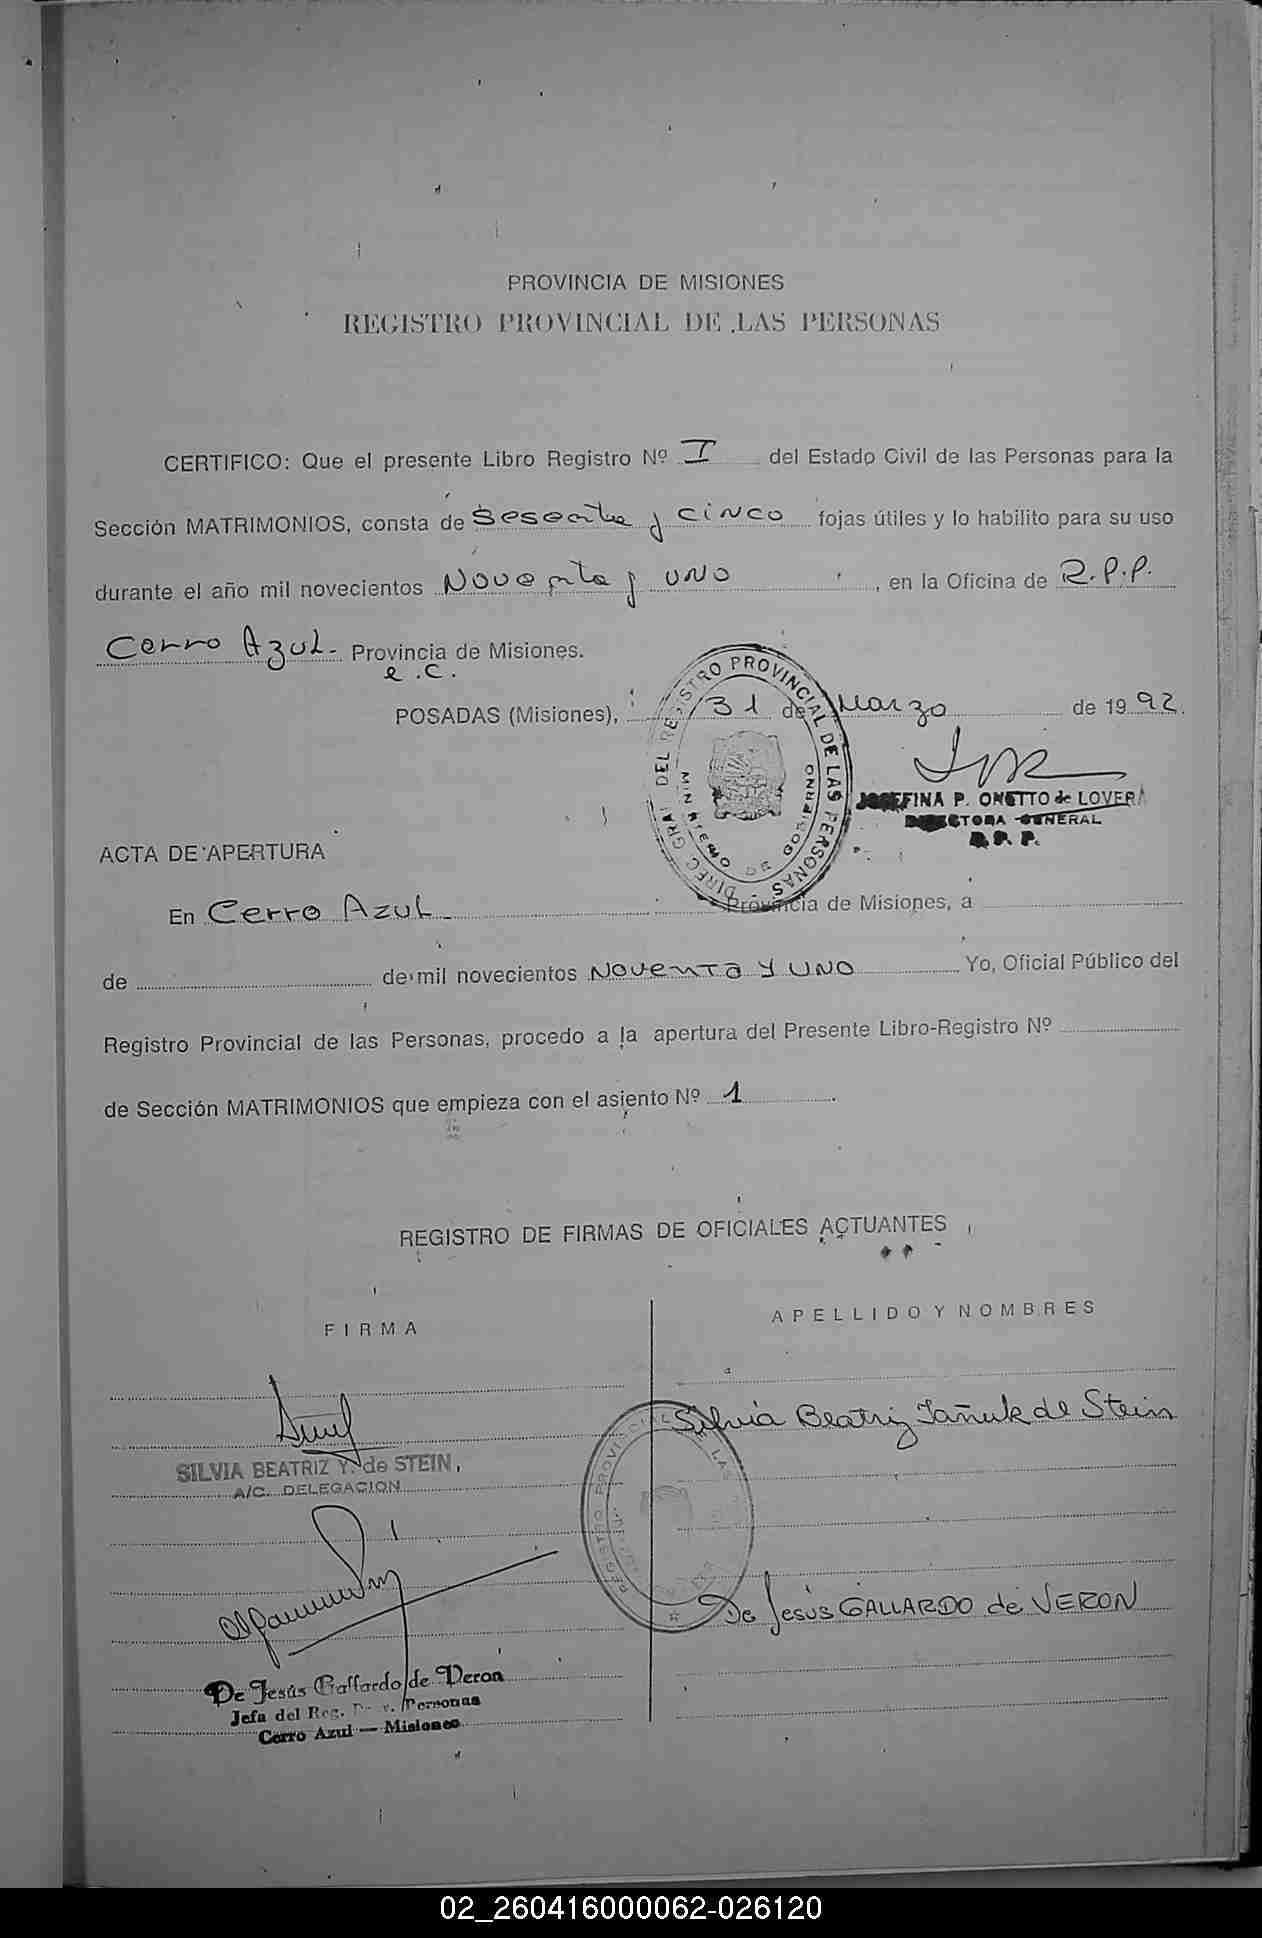 PROVINCIA DE MISIONES
REGISTRO PROVINCIAL DE LAS PERSONAS
CERTIFICO: Que el presente Libro Registro Nº I del Estado Civil de las Personas para la
Sección MATRIMONIOS, consta de Sesenta y cinco fojas útiles y lo habilito para su uso
durante el año mil novecientos Noventa y uno, en la Oficina de R.P.P.
Cerro Azul- Provincia de Misiones.
e.C.
POSADAS (Misiones), 31 de Marzo de 1992.
DIREC. GRAL. DEL REGISTRO PROVINCIAL DE LAS PERSONAS - MINISTERIO DE GOBIERNO
JOSEFINA P. ONETTO de LOVERA
DIRECTORA GENERAL
R. P. P.
ACTA DE APERTURA
En Cerro Azul- Provincia de Misiones, a
de de mil novecientos Noventa y uno Yo, Oficial Público del
Registro Provincial de las Personas, procedo a la apertura del Presente Libro-Registro Nº
de Sección MATRIMONIOS que empieza con el asiento Nº 1.
REGISTRO DE FIRMAS DE OFICIALES ACTUANTES
FIRMA
APELLIDO Y NOMBRES
Silvia Beatriz Yañuk de Stein
SILVIA BEATRIZ Y. de STEIN
A/C. DELEGACION
REGISTRO PROVINCIAL LAS
De Jesús GALLARDO de VERON
De Jesús Gallardo de Veron
Jefa del Reg. Personas
Cerro Azul — Misiones
02_260416000062-026120